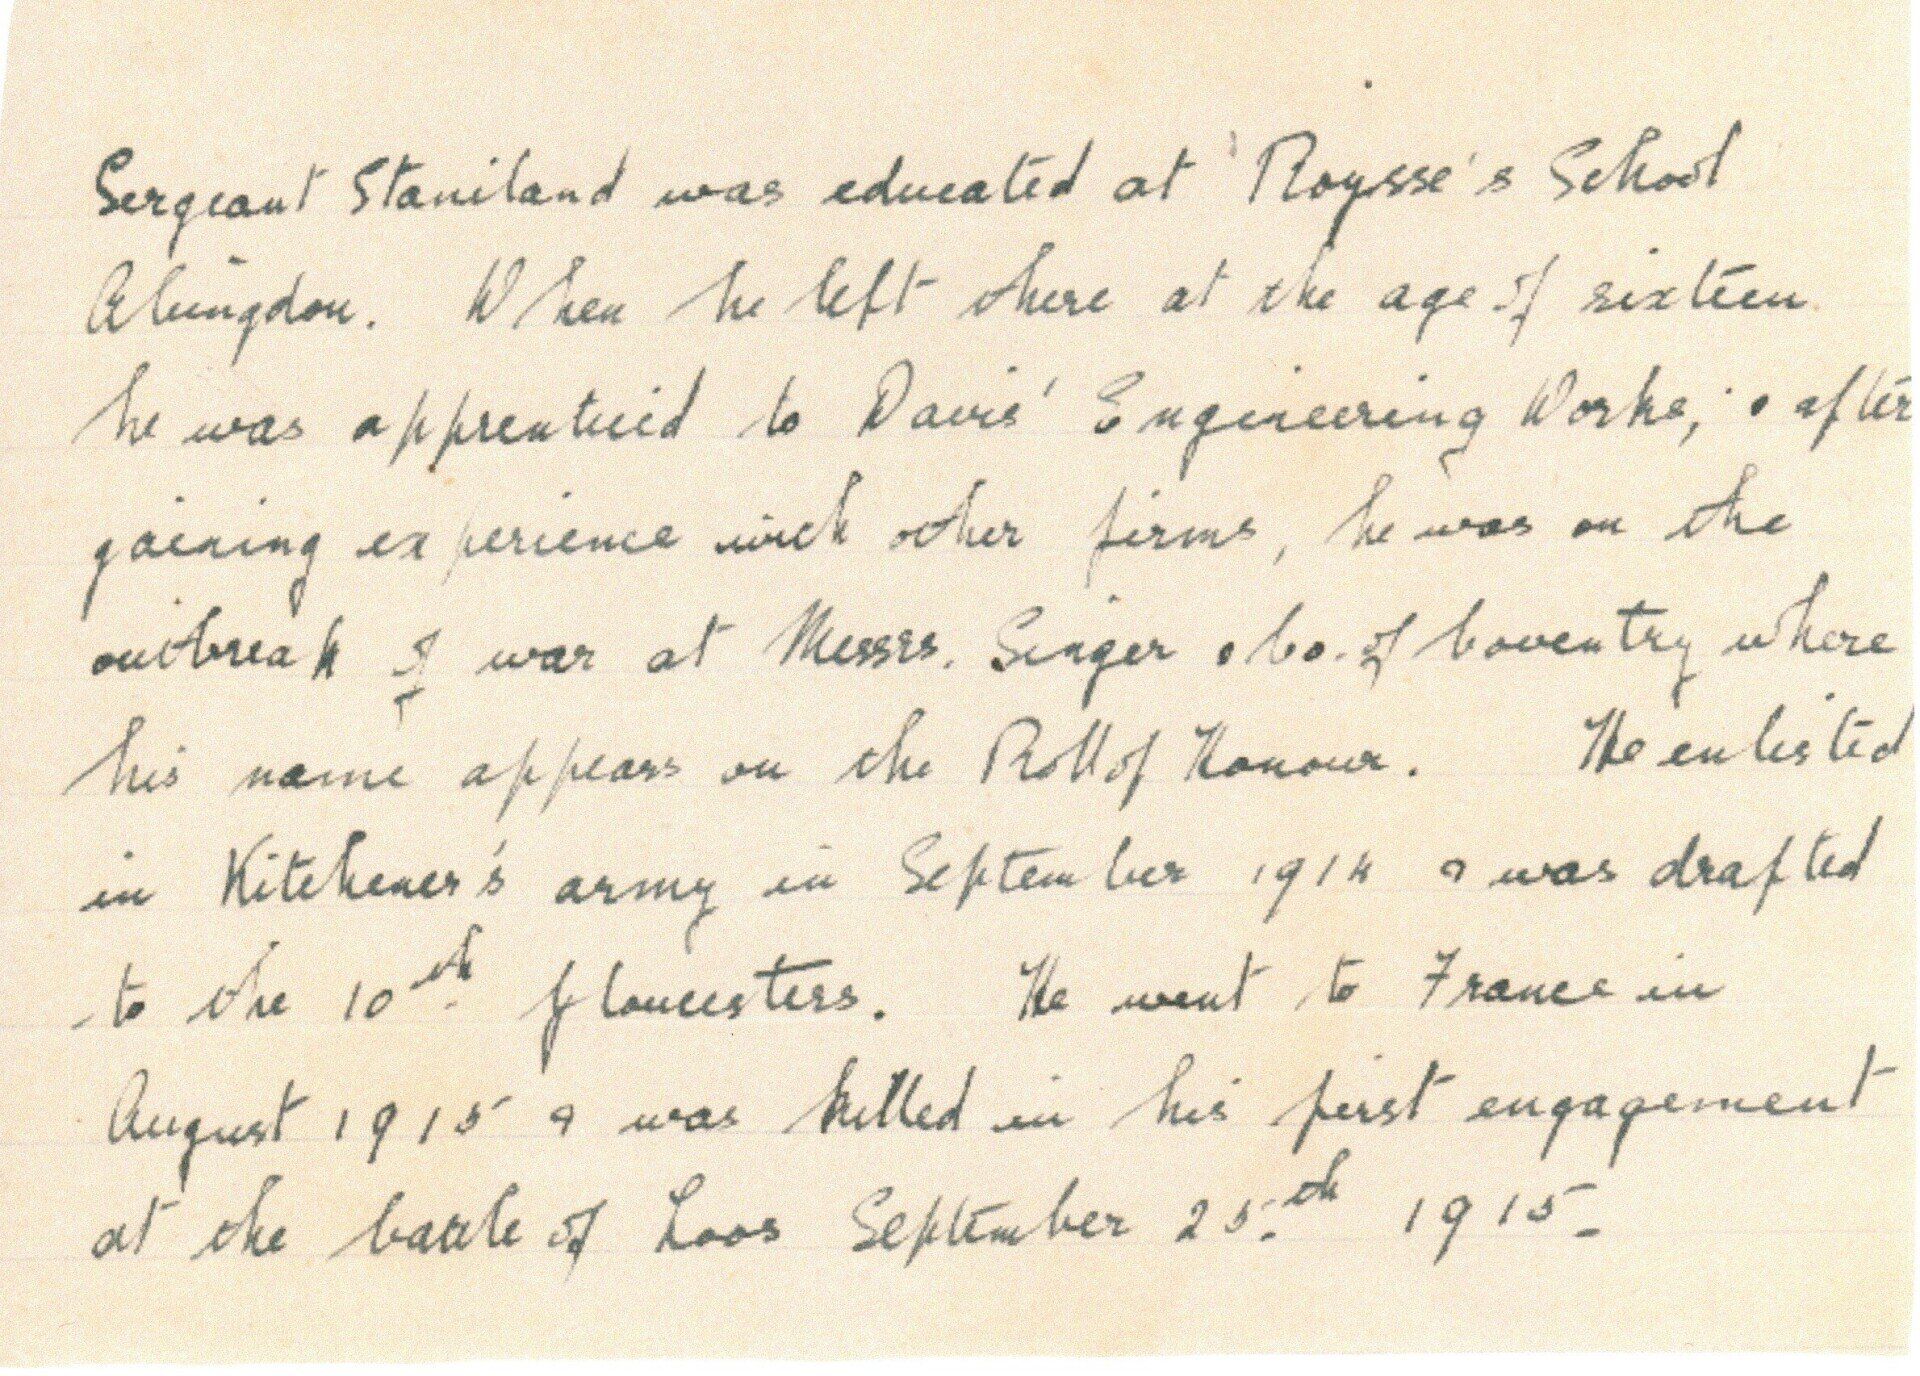 Sergeant Staniland was educated at Roysse's School
Abingdon. When he left there at the age of sixteen
he was apprenticed to Davis' Engineering Works, & after
gaining experience with other firms, he was on the
outbreak of war at Messrs. Singer & Co. of Coventry where
his name appears on the Roll of Honour. He enlisted
in Kitchener's army in September 1914 & was drafted
to the 10th Gloucesters. He went to France in
August 1915 & was killed in his first engagement
at the battle of Loos September 25th 1915.